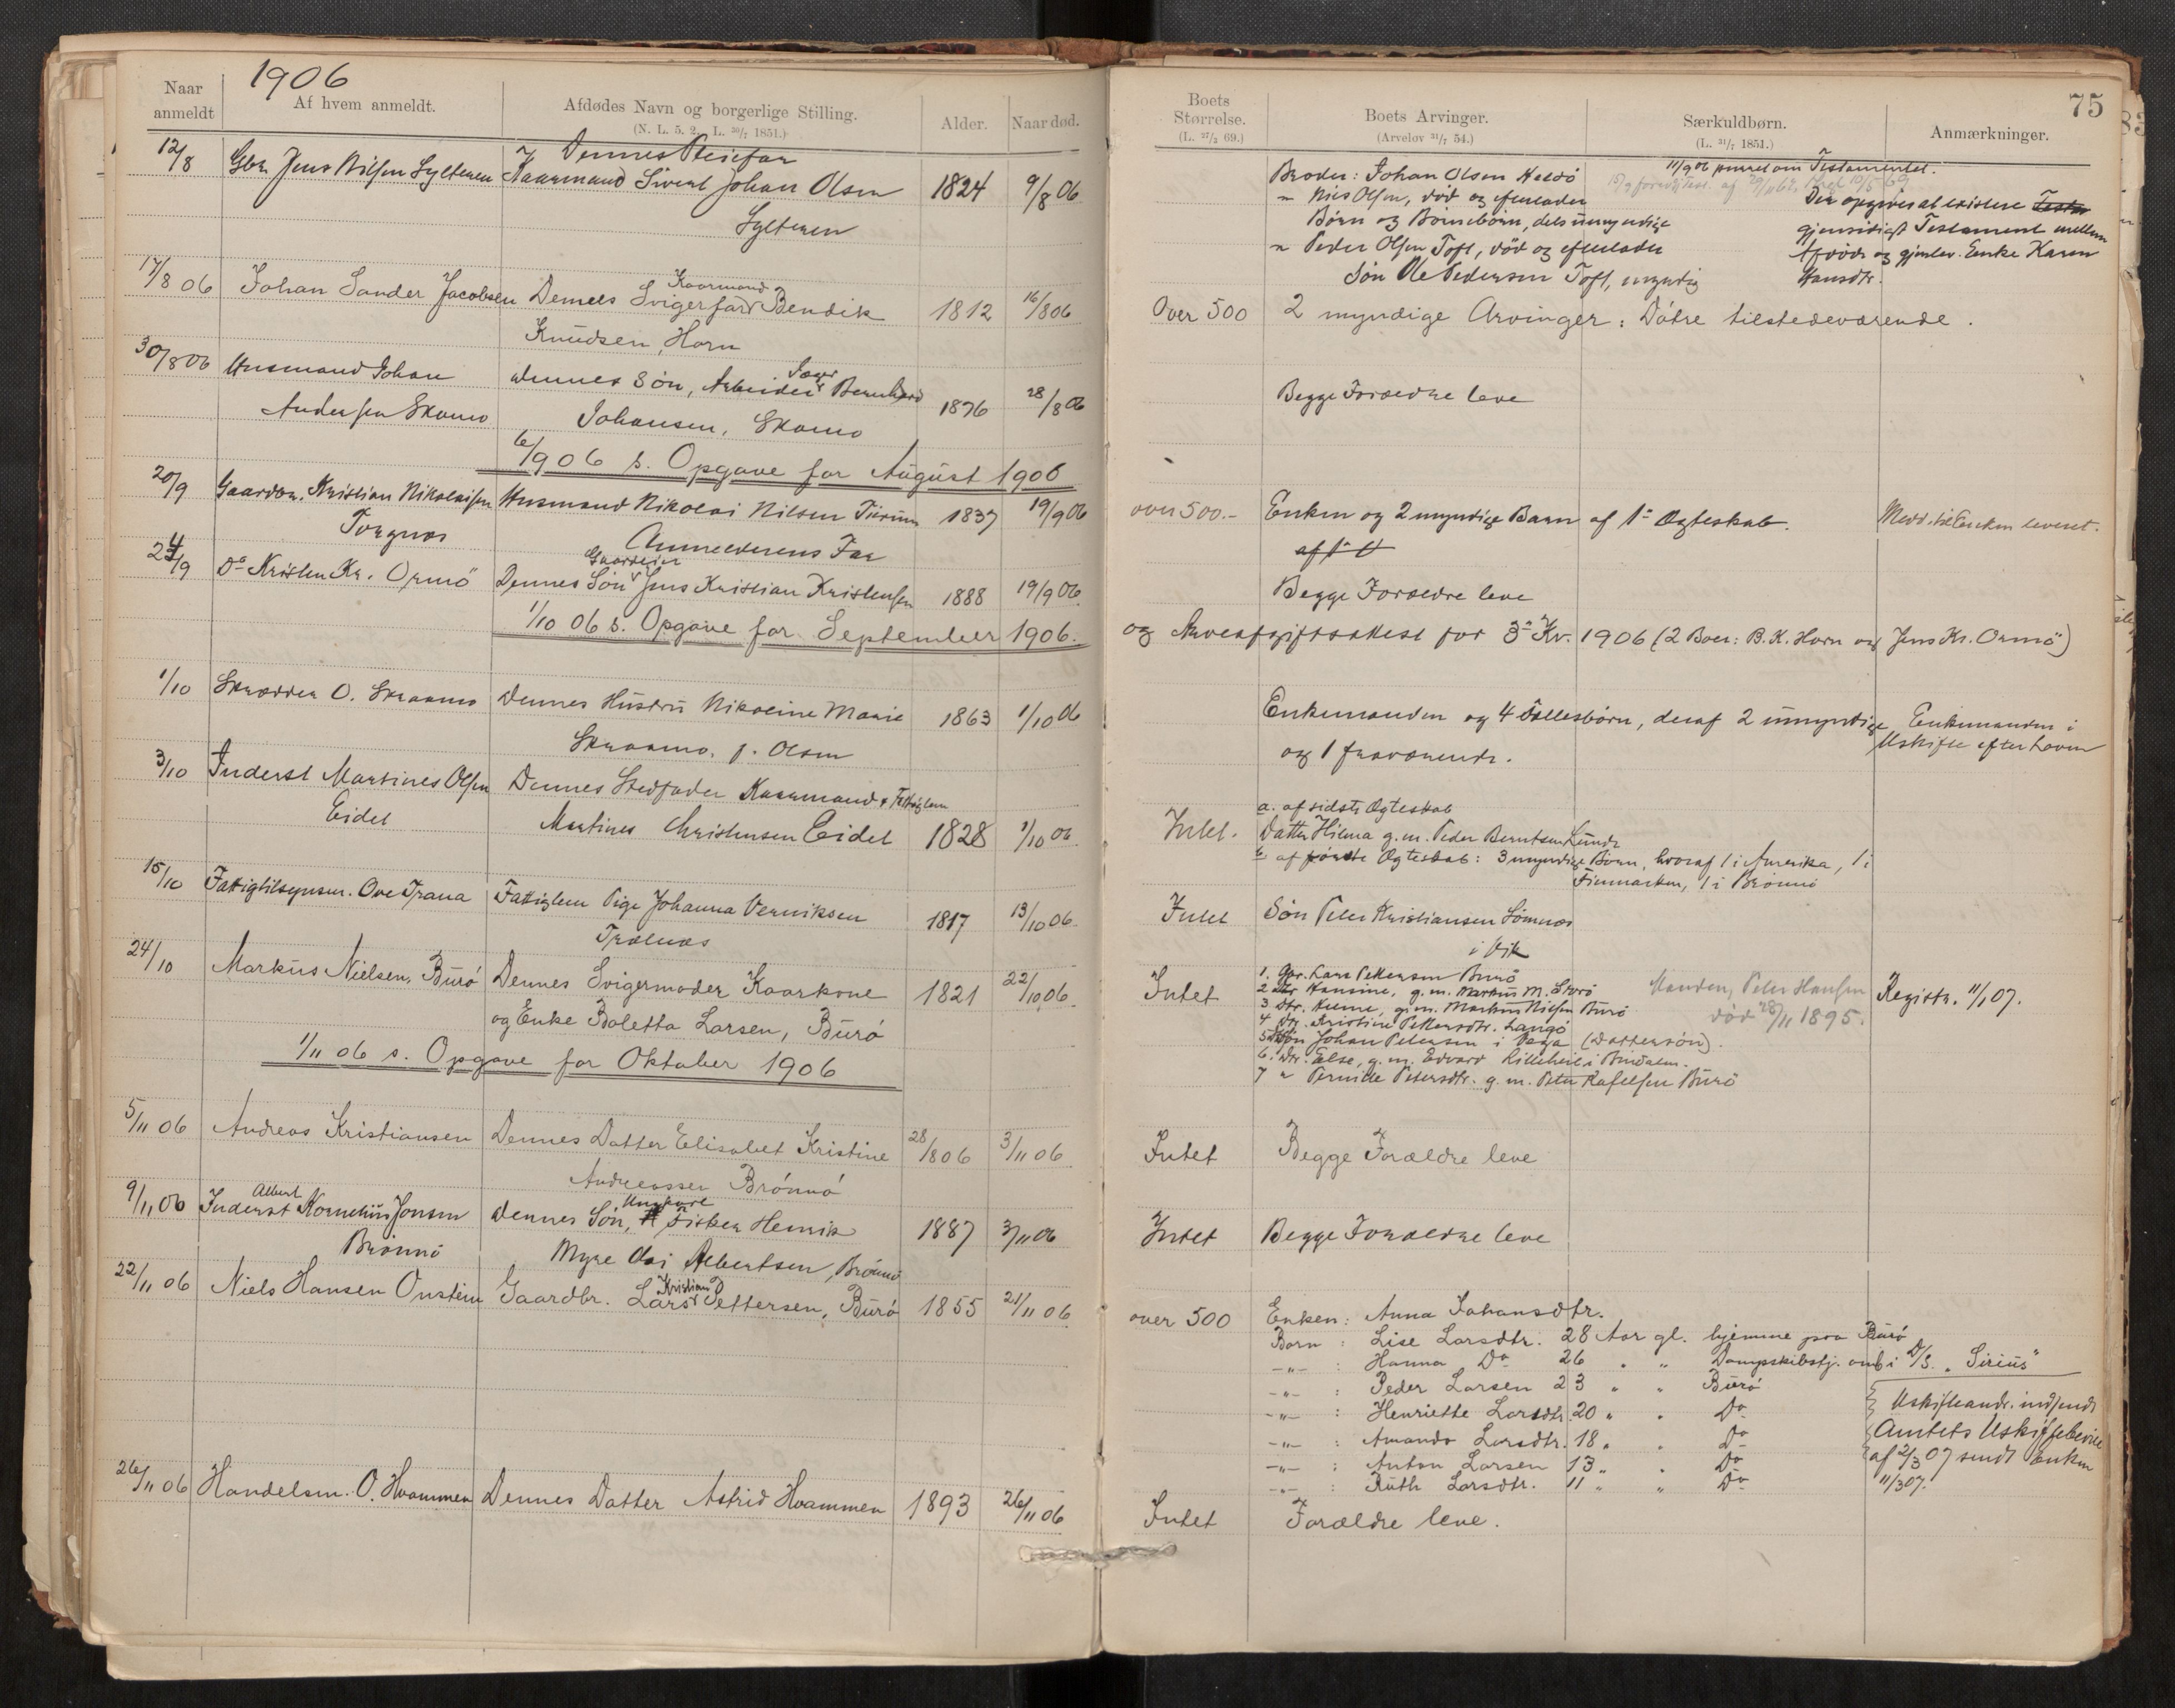 1906
Naar anmeldt
Af hvem anmeldt.
Afdødes Navn og borgerlige Stilling.
(N. L. 5. 2. L. 30/7 1851.)
Alder.
Naar død.
12/8 Gbr. Jens Nilsen Sylteren Dennes Pleiefar
Kaarmand Sivert Johan Olsen 1824 9/8 06
Sylteren
17/8 06 Johan Sander Jacobsen Dennes Svigerfar Kaarmand Bendik 1812 16/8 06
Knudsen, Horn
30/8 06 Husmand Johan Dennes Søn, Arbeider Bernhard 1876 28/8 06
Andersen Skomo Johansen, Skomo
6/9 06 s. Opgave for August 1906
20/9 Gaardbr. Kristian Nikolaisen Husmand Nikolai Nilsen 1837 19/9 06
Torgnes Anmelderens Far
24/9 Do Kristen Kr. Ormö Dennes Søn Jens Kristian Kristensen 1888 19/9 06
1/10 06 s. Opgave for September 1906.
1/10 Skrædder O. Skraamo Dennes Hustru Nikoline Marie 1863 1/10 06
Skraamo. f. Olsen
3/10 Inderst Martines Olsen Dennes Stedfader Kaarmand
Eidet Martines Christensen Eidet 1828 1/10 06
15/10 Fattigtilsynsm. Ove Trana Fattiglem Pige Johanna Verniksen 1817 13/10 06
Trælnes
24/10 Markus Nielsen, Burö Dennes Svigermoder Kaarkone 1821 22/10 06
og Enke Boletta Larsen, Burö
1/11 06 s. Opgave for Oktober 1906
5/11 06 Andreas Kristiansen Dennes Datter Elisabet Kristine 28/8 06 3/11 06
Andreassen Brönnö
9/11 06 Inderst Albert Kornelius Jonsen Dennes Søn, Ungkarl Fisker Henrik 1887 3/11 06
Brönnö Myre Albertsen, Brönnö
22/11 06 Niels Hansen Onstein Gaardbr. Lars Kristian Pettersen, Burö 1855 21/11 06
26/11 06 Handelsm. O. Hvammen Dennes Datter Astrid Hvammen 1893 26/11 06
75
Boets Størrelse.
(L. 27/2 69.)
Boets Arvinger.
(Arvelov 31/7 54.)
Særkuldbørn.
(L. 31/7 1851.)
Anmærkninger.
Broder: Johan Olsen 11/9 06 om Testamentet.
" Nils Olsen, død og efterlader
Børn og Børnebørn, dels umyndige
" Peder Olsen Toft, død og efterlader
Søn Ole Pedersen Toft, myndig
Der opgives at existere
gjensidigt Testament mellem
Afdøde og gjenlev. Enke Karen
Hansdtr.
Over 500 2 myndige Arvinger: Døtre tilstedeværende.
Begge Forældre leve
over 500.- Enken og 2 myndige Barn af 1ste Ægteskab. Medd. til Enken leveret.
Begge Forældre leve
og Arveafgiftsattest for 3die Kv. 1906 (2 Boer: B. K. Horn og Jens Kr. Ormö)
Enkemanden og 4 Fællesbörn, deraf 2 umyndige Enkemanden i
og 1 fraværende. Uskifte efter Loven
Intet. a. af sidste Ægteskab
Datter Hilma g.m. Peder Berntsen Lunde
b af første Ægteskab: 3 myndige Børn, hvoraf 1 i Amerika, 1 i
Finmarken, 1 i Brönnö
Intet Søn Peter Kristiansen Sömnes
i Vik
Intet 1. Gbr. Lars Pettersen Burö
2 Dtr Hansine, g.m. Markus M.
3. Dtr. g.m. Markus Nielsen Burö
4 Dtr. Kristine Pettersdtr. Langö
5 Søn Johan Petersen i Vega (Dattersøn).
6. Dtr. Else, g.m. Edvard Lilleheil i Bindalen.
7 " Pernille Petersdtr. g.m. Peter Rafelsen Burö
Manden, Peter Hansen
død 28/11 1895.
Registr. 11/1 07.
Intet Begge Forældre leve
Intet Begge Forældre leve
over 500 Enken: Anna Johansdtr.
Barn: Lise Larsdtr. 28 Aar gl. hjemme paa Burö
-"-: Hanna Do 26 " " Dampskibstj. omb i D/S. „Sirius"
-"-: Peder Larsen 23 " " Burö
-"-: Henriette Larsdtr. 20 " " Do
-"-: Amanda Larsdtr. 18 " " Do
-"-: Anton Larsen 13 " " Do
-"-: Ruth Larsdtr. 11 " " Do
Uskifteandr. indsendt
Amtets Uskiftebevill
af 2/3 07 sendt Enken
11/3 07.
Intet Forældre leve.